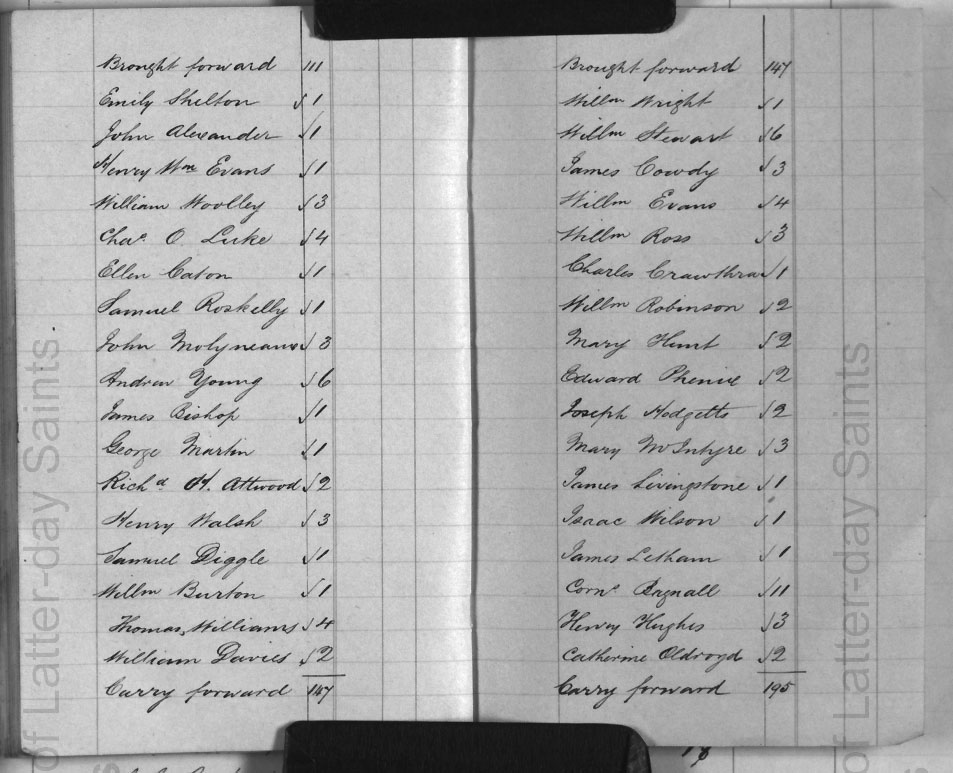 Brought forward 111
Emily Shelton √ 1
John Alexander √ 1
Henry Wm Evans √ 1
William Woolley √ 3
Chas. O. Luke √ 4
Ellen Caton √ 1
Samuel Roskelly √ 1
John Molyneaux √ 3
Andrew Young √ 6
James Bishop √ 1
George Martin √ 1
Richd H. Attwood √ 2
Henry Walsh √ 3
Samuel Diggle √ 1
Willm Burton √ 1
Thomas Williams √ 4
William Davies √ 2
Carry forward 147
Brought forward 147
Willm Wright √ 1
Willm Stewart √ 6
James Cowdy √ 3
Willm Evans √ 4
Willm Ross √ 3
Charles Crawthra √ 1
Willm Robinson √ 2
Mary Hunt √ 2
Edward Phenie √ 2
Joseph Hodgetts √ 2
Mary McIntyre √ 3
James Livingstone √ 1
Isaac Wilson √ 1
James Letham √ 1
Corns. Bagnall √ 11
Henry Hughes √ 3
Catherine Oldroyd √ 2
Carry forward 195
of Latter-day Saints.
of Latter-day Saints